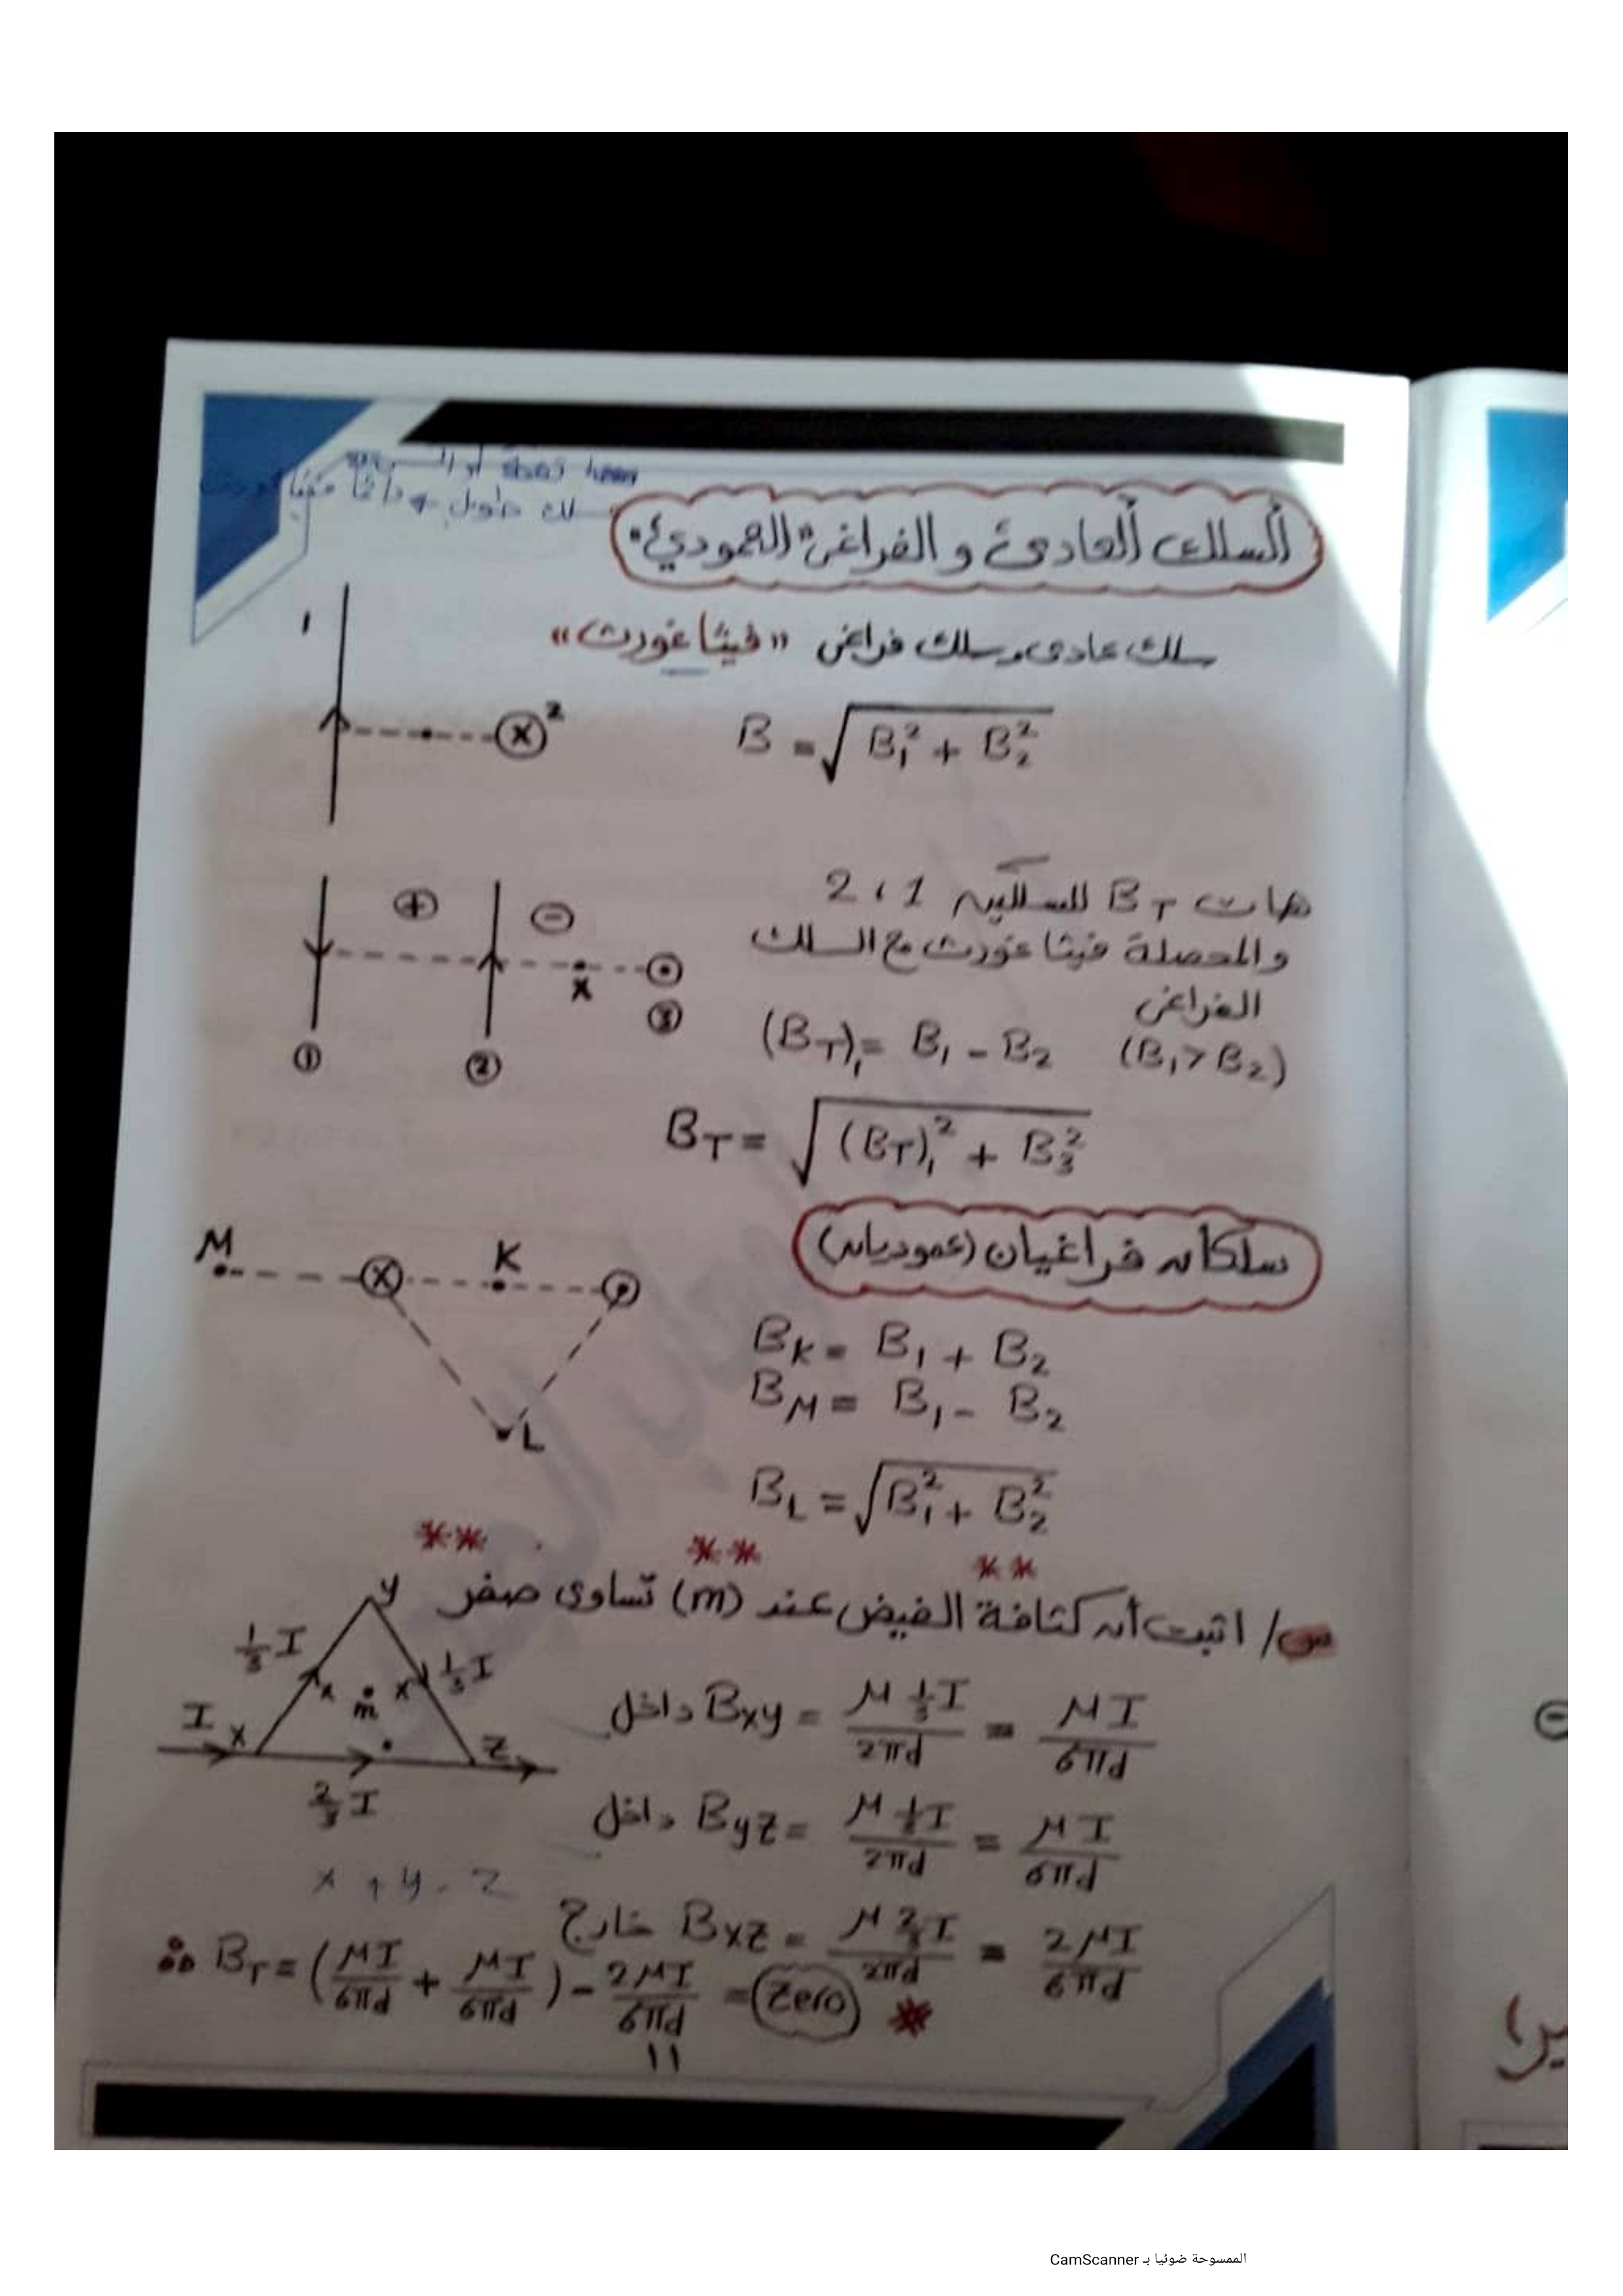 نقطة أو
سلك طول دائما فيثاغورث
السلك العادى و الفراغى "العمودى"
سلك عادى وسلك فراغى "فيثاغورث"
1
X 2
B = √(B₁² + B₂²)
هات B_T للسلكين 1 ، 2
والمحصلة فيثاغورث مع السلك
الفراغى
+ −
X
① ② ③
(B_T)₁ = B₁ − B₂ (B₁ > B₂)
B_T = √((B_T)₁² + B₃²)
سلكان فراغيان (عموديان)
M X K
L
B_K = B₁ + B₂
B_M = B₁ − B₂
B_L = √(B₁² + B₂²)
** ** **
س/ اثبت أن كثافة الفيض عند (m) تساوى صفر
y
1/3 I 1/3 I
x m x
I x z
2/3 I
داخل Bxy = μ 1/3 I / 2πd = μI / 6πd
داخل Byz = μ 1/3 I / 2πd = μI / 6πd
x + y - z
خارج Bxz = μ 2/3 I / 2πd = 2μI / 6πd
∴ B_T = (μI/6πd + μI/6πd) − 2μI/6πd = Zero *
11
يرا
الممسوحة ضوئيا بـ CamScanner